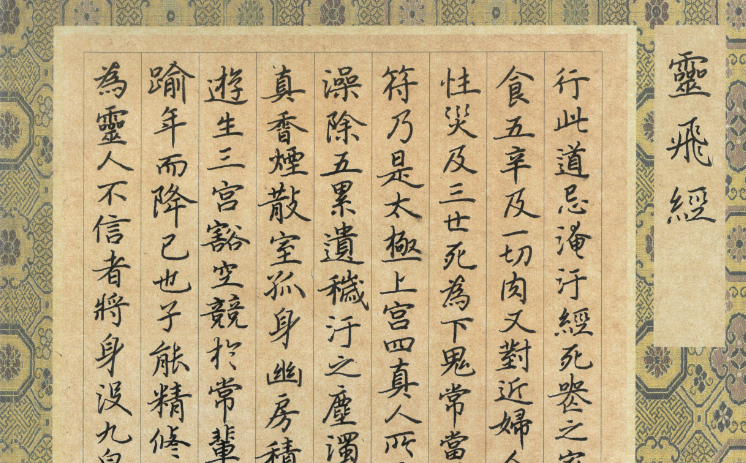 靈飛經
行此道忌淹汙經死喪之家
食五辛及一切肉又對近婦人
性災及三世死為下鬼常當
符乃是太極上宮四真人所
澡除五累遺穢汙之塵濁
真香煙散室孤身幽房積
遊生三宮豁空競於常輩
踰年而降已也子能精修
為靈人不信者將身沒九泉